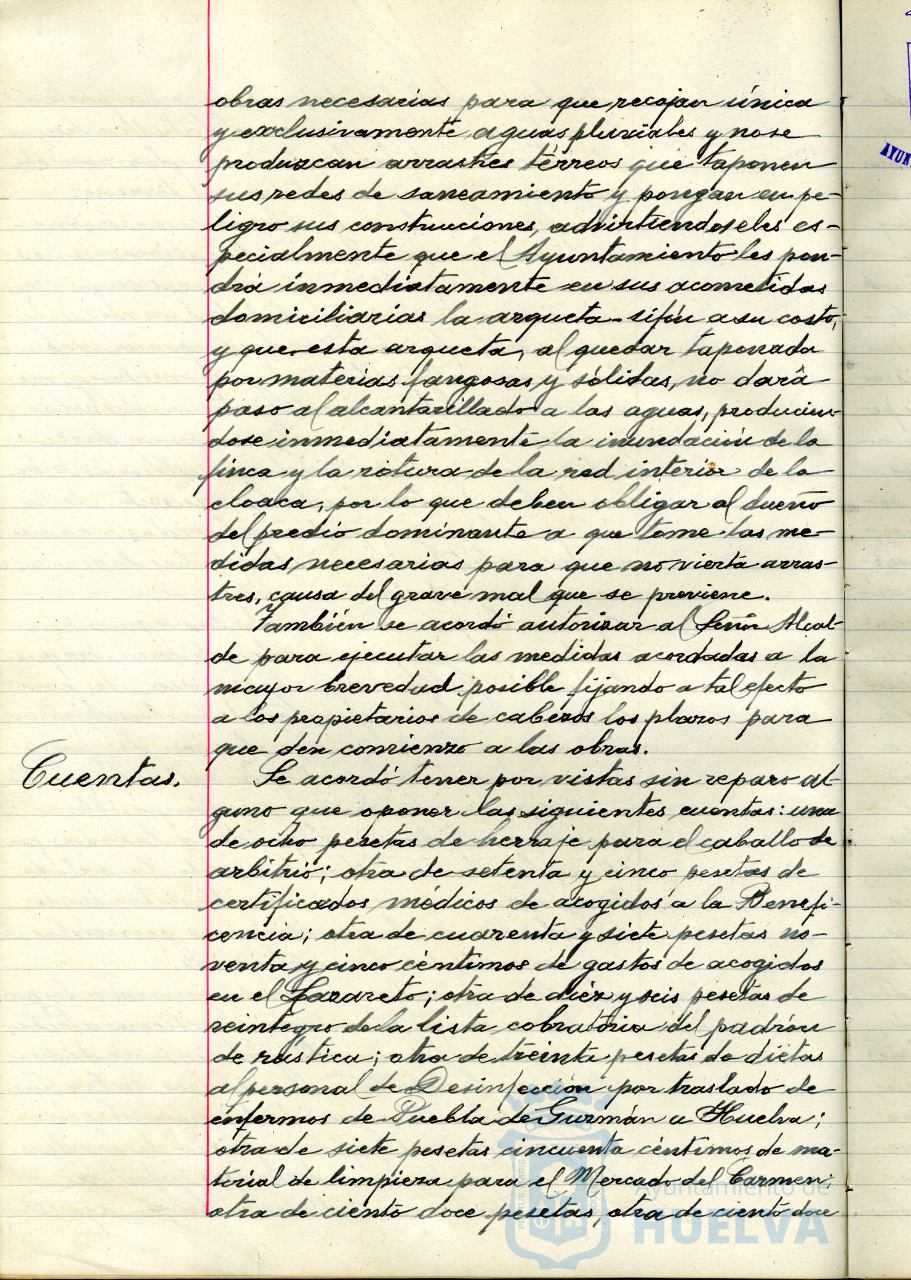 obras necesarias para que recojan única
y exclusivamente aguas pluviales y no se
produzcan arrastres térreos que taponen
sus redes de saneamiento y pongan en pe-
ligro sus construcciones, advirtiendoseles es-
pecialmente que el Ayuntamiento les pon-
drá inmediatamente en sus acometidas
domiciliarias la arqueta-sifón a su costo,
y que esta arqueta, al quedar taponada
por materias fangosas y sólidas, no dará
paso al alcantarillado a las aguas, producien-
dose inmediatamente la inundación de la
finca y la rotura de la red interior de la
cloaca, por lo que deben obligar al dueño
del predio dominante a que tome las me-
didas necesarias para que no vierta arras-
tres, causa del grave mal que se previene.
También se acordó autorizar al Señor Alcal-
de para ejecutar las medidas acordadas a la
mayor brevedad posible fijando a tal efecto
a los propietarios de cabezos los plazos para
que den comienzo a las obras.
Cuentas.
Se acordó tener por vistas sin reparo al-
guno que oponer las siguientes cuentas: una
de ocho pesetas de herraje para el caballo de
arbitrio; otra de setenta y cinco pesetas de
certificados médicos de acogidos a la Benefi-
cencia; otra de cuarenta y siete pesetas no-
venta y cinco céntimos de gastos de acogidos
en el Lazareto; otra de diéz y seis pesetas de
reintegro de la lista cobratoria del padrón
de rústica; otra de treinta pesetas de dietas
al personal de Desinfección por traslado de
enfermos de Puebla de Guzmán a Huelva;
otra de siete pesetas cincuenta céntimos de ma-
terial de limpieza para el Mercado del Carmen;
otra de ciento doce pesetas, otra de ciento doce
Ayuntamiento de
HUELVA
AYUN